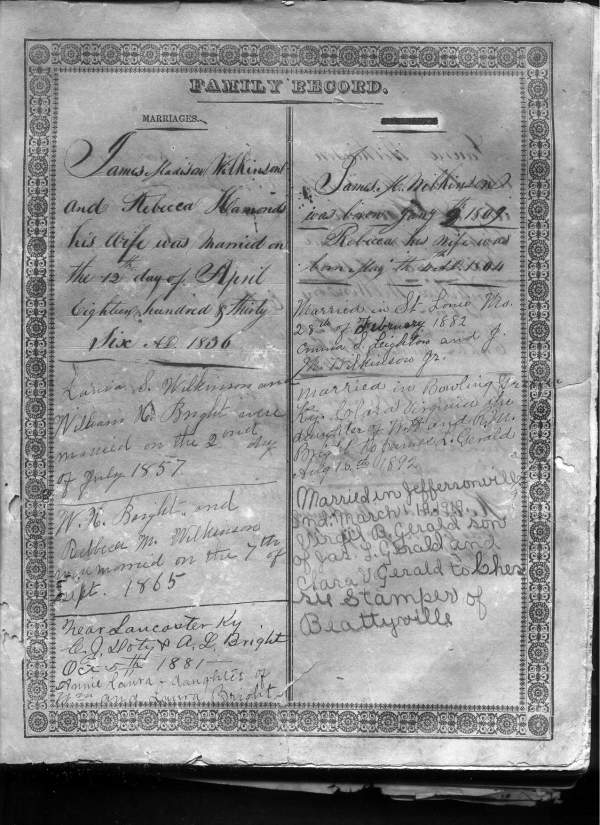 FAMILY RECORD.
MARRIAGES.
James Madison Wilkinson
and Rebecca Hamonds
his Wife was Married on
the 12th day of April
Eighteen hundred & thirty
Six AD. 1836
Laura S. Wilkinson and
William H. Bright were
married on the 2nd day
of July 1857
W. H. Bright and
Rebecca M. Wilkinson
married on the 7th of
Sept. 1865
Near Lancaster Ky
C. J. Doty & A. L. Bright
Oct 5th 1881
Annie Laura - daughter of
Wm and Laura Bright
James M. Wilkinson
was born Jany 9th 1809
Rebecca his Wife was
born May 1804
Married in St. Louis Mo.
28th of February 1882
Emma S. Leighton and J.
M. Wilkinson Jr.
Married in Bowling Green
Ky. Clara Virginia the
daughter of W. H. and R. M.
Bright to James L. Gerald
Aug 16th 1892
Married in Jeffersonville
Ind. March 1918
Virgil B. Gerald son
of Jas. L. Gerald and
Clara V Gerald to Ches
sie Stamper of
Beattyville